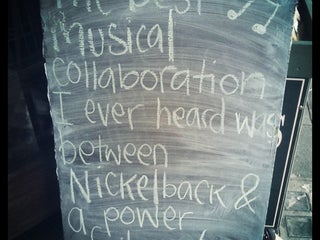 The best
musical
collaboration
I ever heard was
between
Nickelback &
a power